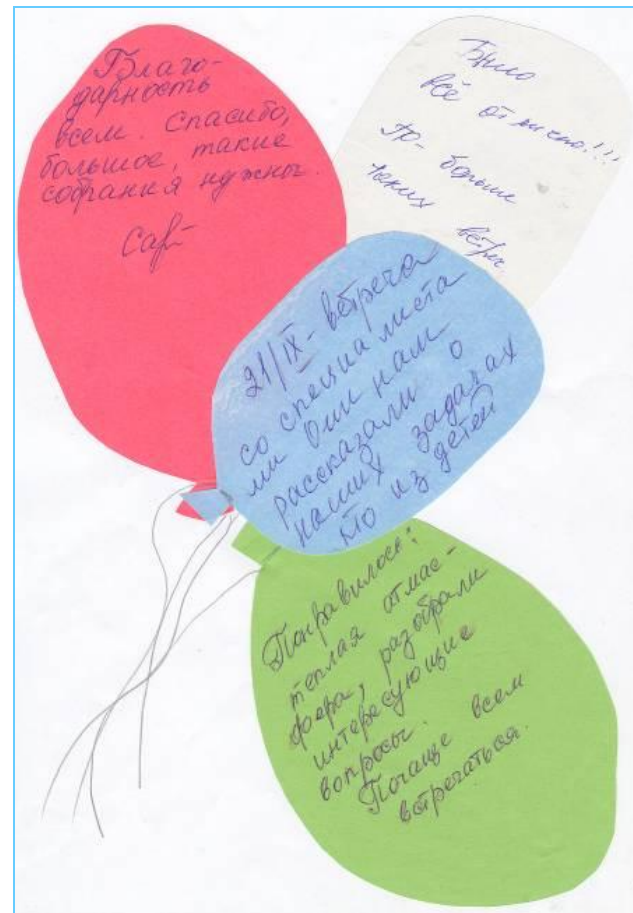 Благо-
дарность
всем. Спасибо,
большое, такие
собрания нужны.
Было
всё отлично!!!
больше
таких встреч
21/IX - встреча
со специалиста
ми Они нам
рассказали о
наших задачах
кто из детей
Понравилось:
теплая атмас-
фера, разобрали
интересующие
вопросы.
Почаще всем
встречаться.